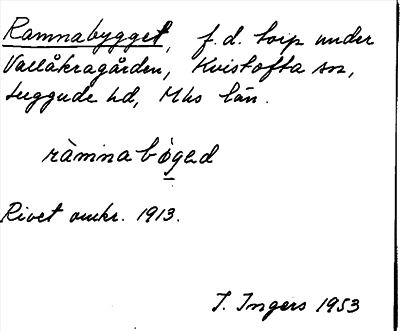 Ramnabygget, f.d. torp under
Vallåkragården, Kvistofta sn,
Luggude hd, Mhs län.
ràmnabỳgəd
Rivet omkr. 1913.
I. Ingers 1953